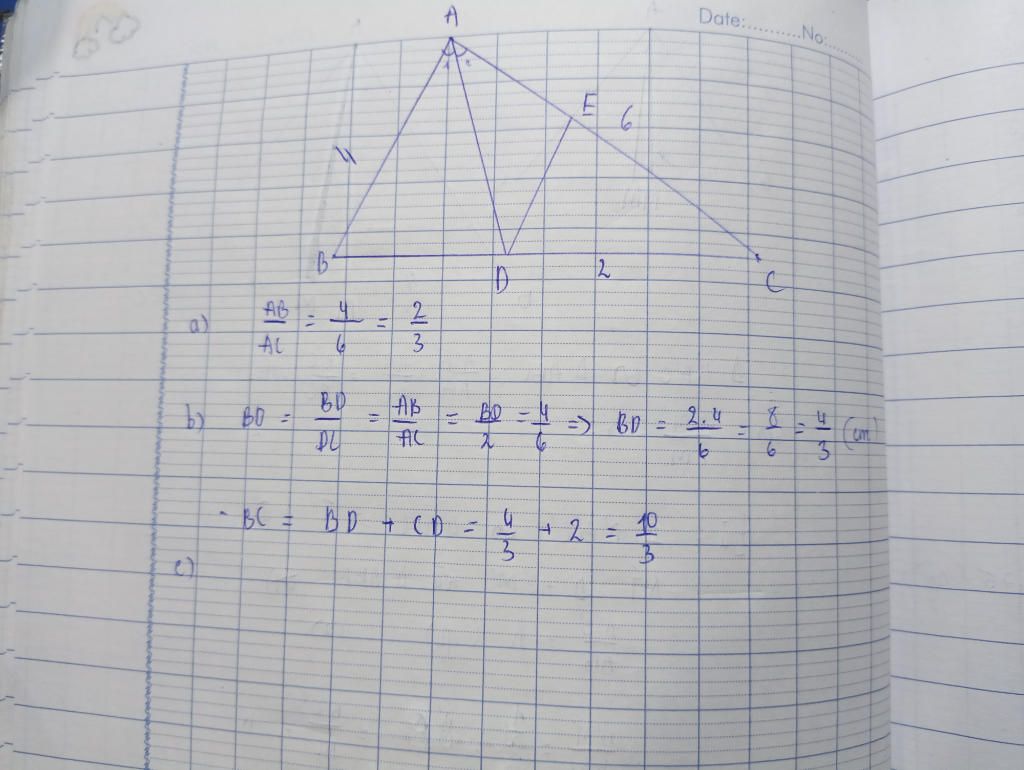 Date:..........No:.......
A
E 6
4
B D 2 C
a) AB/AC = 4/6 = 2/3
b) BD = BD/DC = AB/AC = BD/2 = 4/6 => BD = 2.4/6 = 8/6 = 4/3 (cm)
- BC = BD + CD = 4/3 + 2 = 10/3
c)